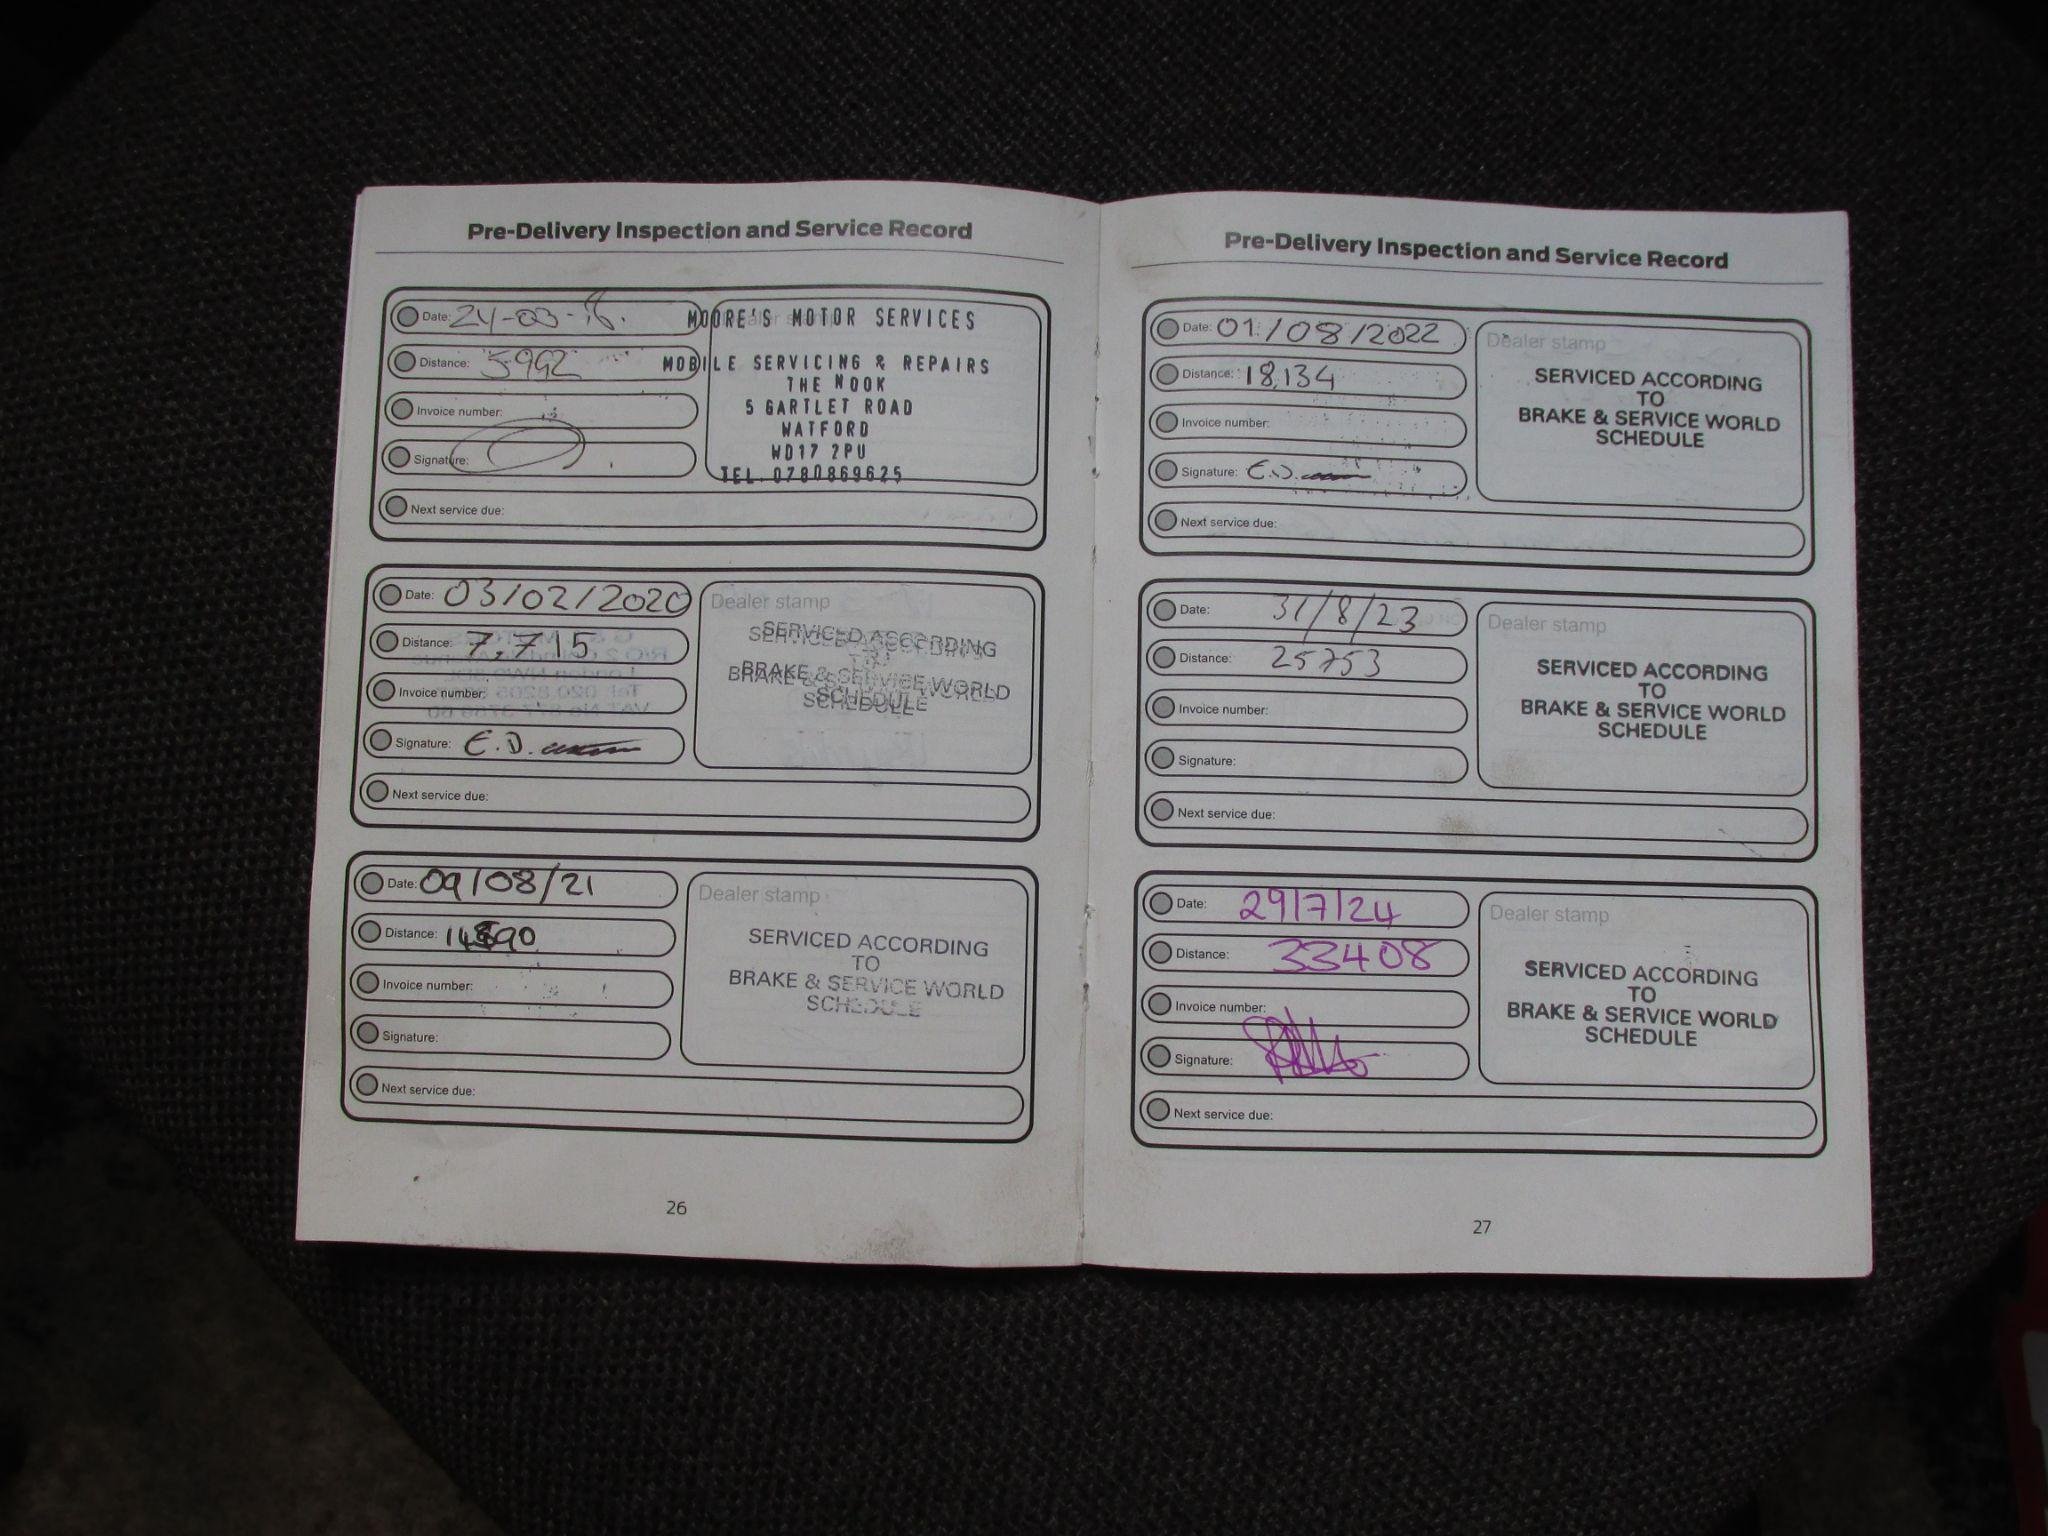 Pre-Delivery Inspection and Service Record
Date: 24-03-16.
Distance: 5992
Invoice number:
Signature:
Next service due:
MOORE'S MOTOR SERVICES
MOBILE SERVICING & REPAIRS
THE NOOK
5 GARTLET ROAD
WATFORD
WD17 2PU
TEL. 0780869625
Date: 03/02/2020
Distance: 7,715
Invoice number:
Signature: E.D.
Next service due:
Dealer stamp
SERVICED ACCORDING
TO
BRAKE & SERVICE WORLD
SCHEDULE
Date: 09/08/21
Distance:
Invoice number:
Signature:
Next service due:
Dealer stamp
SERVICED ACCORDING
TO
BRAKE & SERVICE WORLD
SCHEDULE
26
Pre-Delivery Inspection and Service Record
Date: 01/08/2022
Distance: 18,134
Invoice number:
Signature: E.D.
Next service due:
Dealer stamp
SERVICED ACCORDING
TO
BRAKE & SERVICE WORLD
SCHEDULE
Date: 31/8/23
Distance: 25753
Invoice number:
Signature:
Next service due:
Dealer stamp
SERVICED ACCORDING
TO
BRAKE & SERVICE WORLD
SCHEDULE
Date: 29/7/24
Distance: 33408
Invoice number:
Signature:
Next service due:
Dealer stamp
SERVICED ACCORDING
TO
BRAKE & SERVICE WORLD
SCHEDULE
27